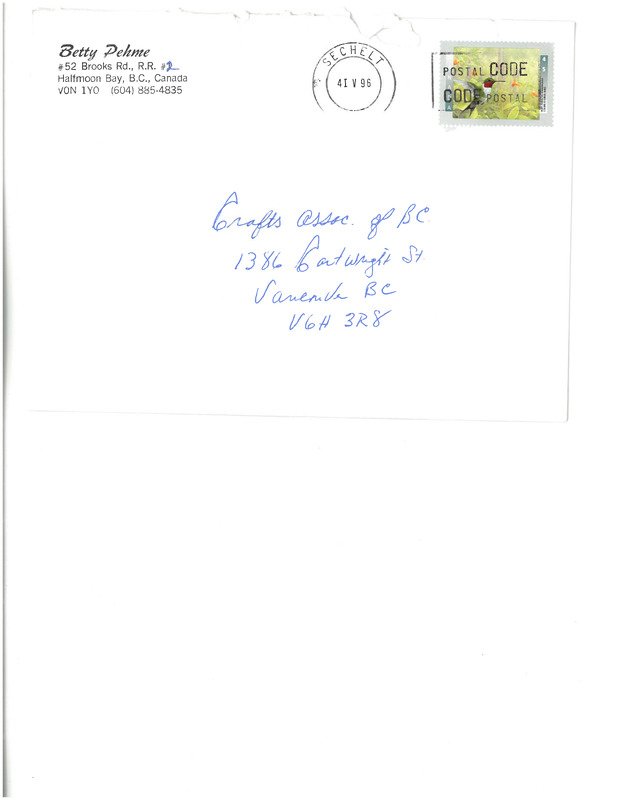 Betty Pehme
#52 Brooks Rd., R.R. #2
Halfmoon Bay, B.C., Canada
V0N 1Y0 (604) 885-4835
SECHELT
41 V 96
POSTAL CODE
CODE POSTAL
45
Crafts Assoc. of BC
1386 Cartwright St.
Vancouver BC
V6H 3R8